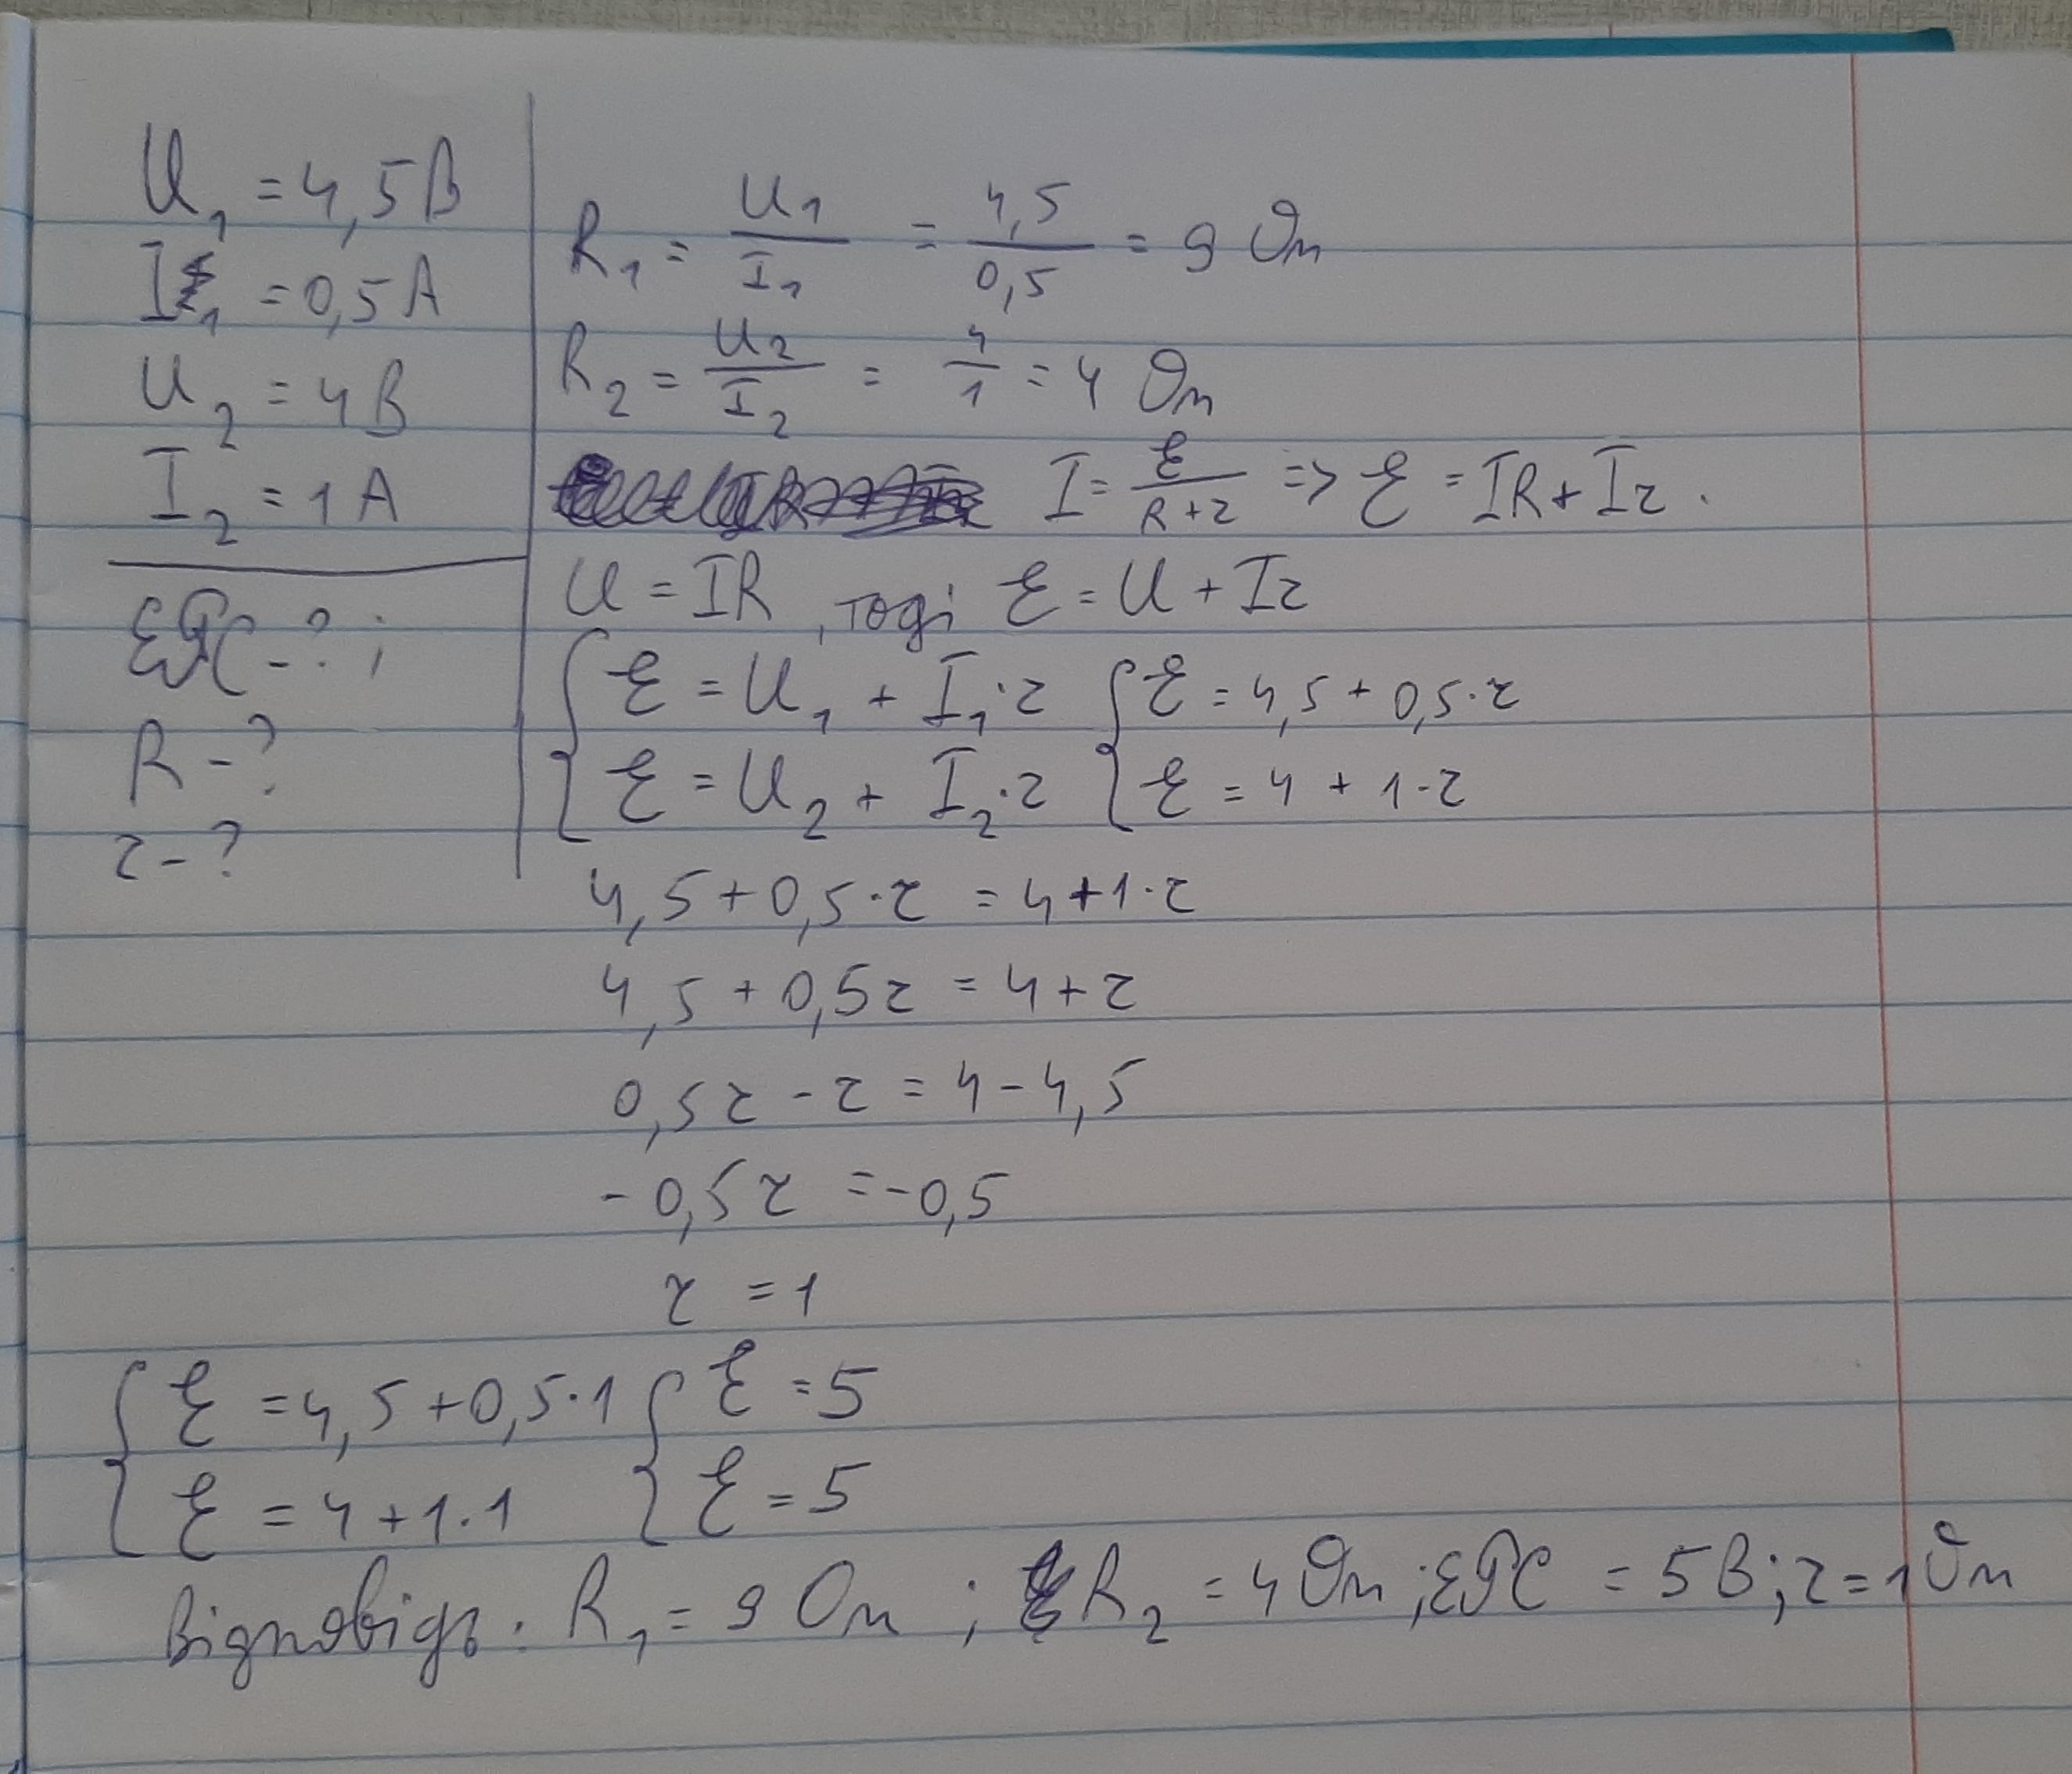 U₁ = 4,5 В
I₁ = 0,5 А
U₂ = 4 В
I₂ = 1 А
ЕРС - ? ;
R - ?
r - ?
R₁ = U₁/I₁ = 4,5/0,5 = 9 Ом
R₂ = U₂/I₂ = 4/1 = 4 Ом
I = ℰ/(R+r) => ℰ = IR + Ir .
U = IR , тоді ℰ = U + Ir
{ ℰ = U₁ + I₁·r { ℰ = 4,5 + 0,5·r
{ ℰ = U₂ + I₂·r { ℰ = 4 + 1·r
4,5 + 0,5·r = 4 + 1·r
4,5 + 0,5r = 4 + r
0,5r - r = 4 - 4,5
- 0,5r = -0,5
r = 1
{ ℰ = 4,5 + 0,5·1 { ℰ = 5
{ ℰ = 4 + 1·1 { ℰ = 5
Відповідь: R₁ = 9 Ом ; R₂ = 4 Ом ; ЕРС = 5 В; r = 1 Ом